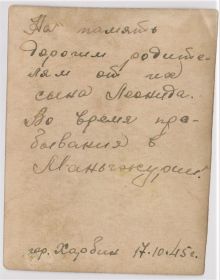 На память
дорогим родите-
лям от их
сына Леонида.
Во время пре-
бывания в
Маньчжурии.
гор. Харбин 17.10.45 г.